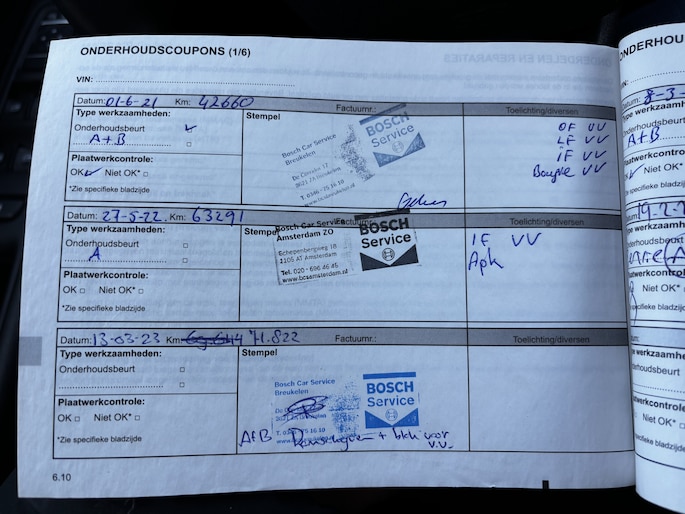 ONDERHOUDSCOUPONS (1/6)
VIN:
Datum: 01-6-21 Km: 42660 Factuurnr.: Toelichting/diversen
Type werkzaamheden:
Onderhoudsbeurt
A+B
Plaatwerkcontrole:
OK Niet OK*
*Zie specifieke bladzijde
Stempel
Bosch Car Service
Breukelen
BOSCH
Service
OF VV
LF VV
IF VV
Bougie VV
Datum: 27-5-22 Km: 63291 Factuurnr.: Toelichting/diversen
Type werkzaamheden:
Onderhoudsbeurt
A
Plaatwerkcontrole:
OK Niet OK*
*Zie specifieke bladzijde
Stempel
Bosch Car Service
Amsterdam ZO
Schepenbergweg 18
1105 AT Amsterdam
Tel. 020 - 696 46 45
www.bcsamsterdam.nl
BOSCH
Service
IF VV
Apk
Datum: 13-03-23 Km: 71.822 Factuurnr.: Toelichting/diversen
Type werkzaamheden:
Onderhoudsbeurt
Plaatwerkcontrole:
OK Niet OK*
*Zie specifieke bladzijde
Stempel
Bosch Car Service
Breukelen
BOSCH
Service
+
voor
V.V.
6.10
ONDERHOU
VIN:
Datum: 8-3-
Type werk
Onderhoudsbeu
A+B
Plaatwerkcontrole:
Niet OK*
*Zie specifieke bladzi